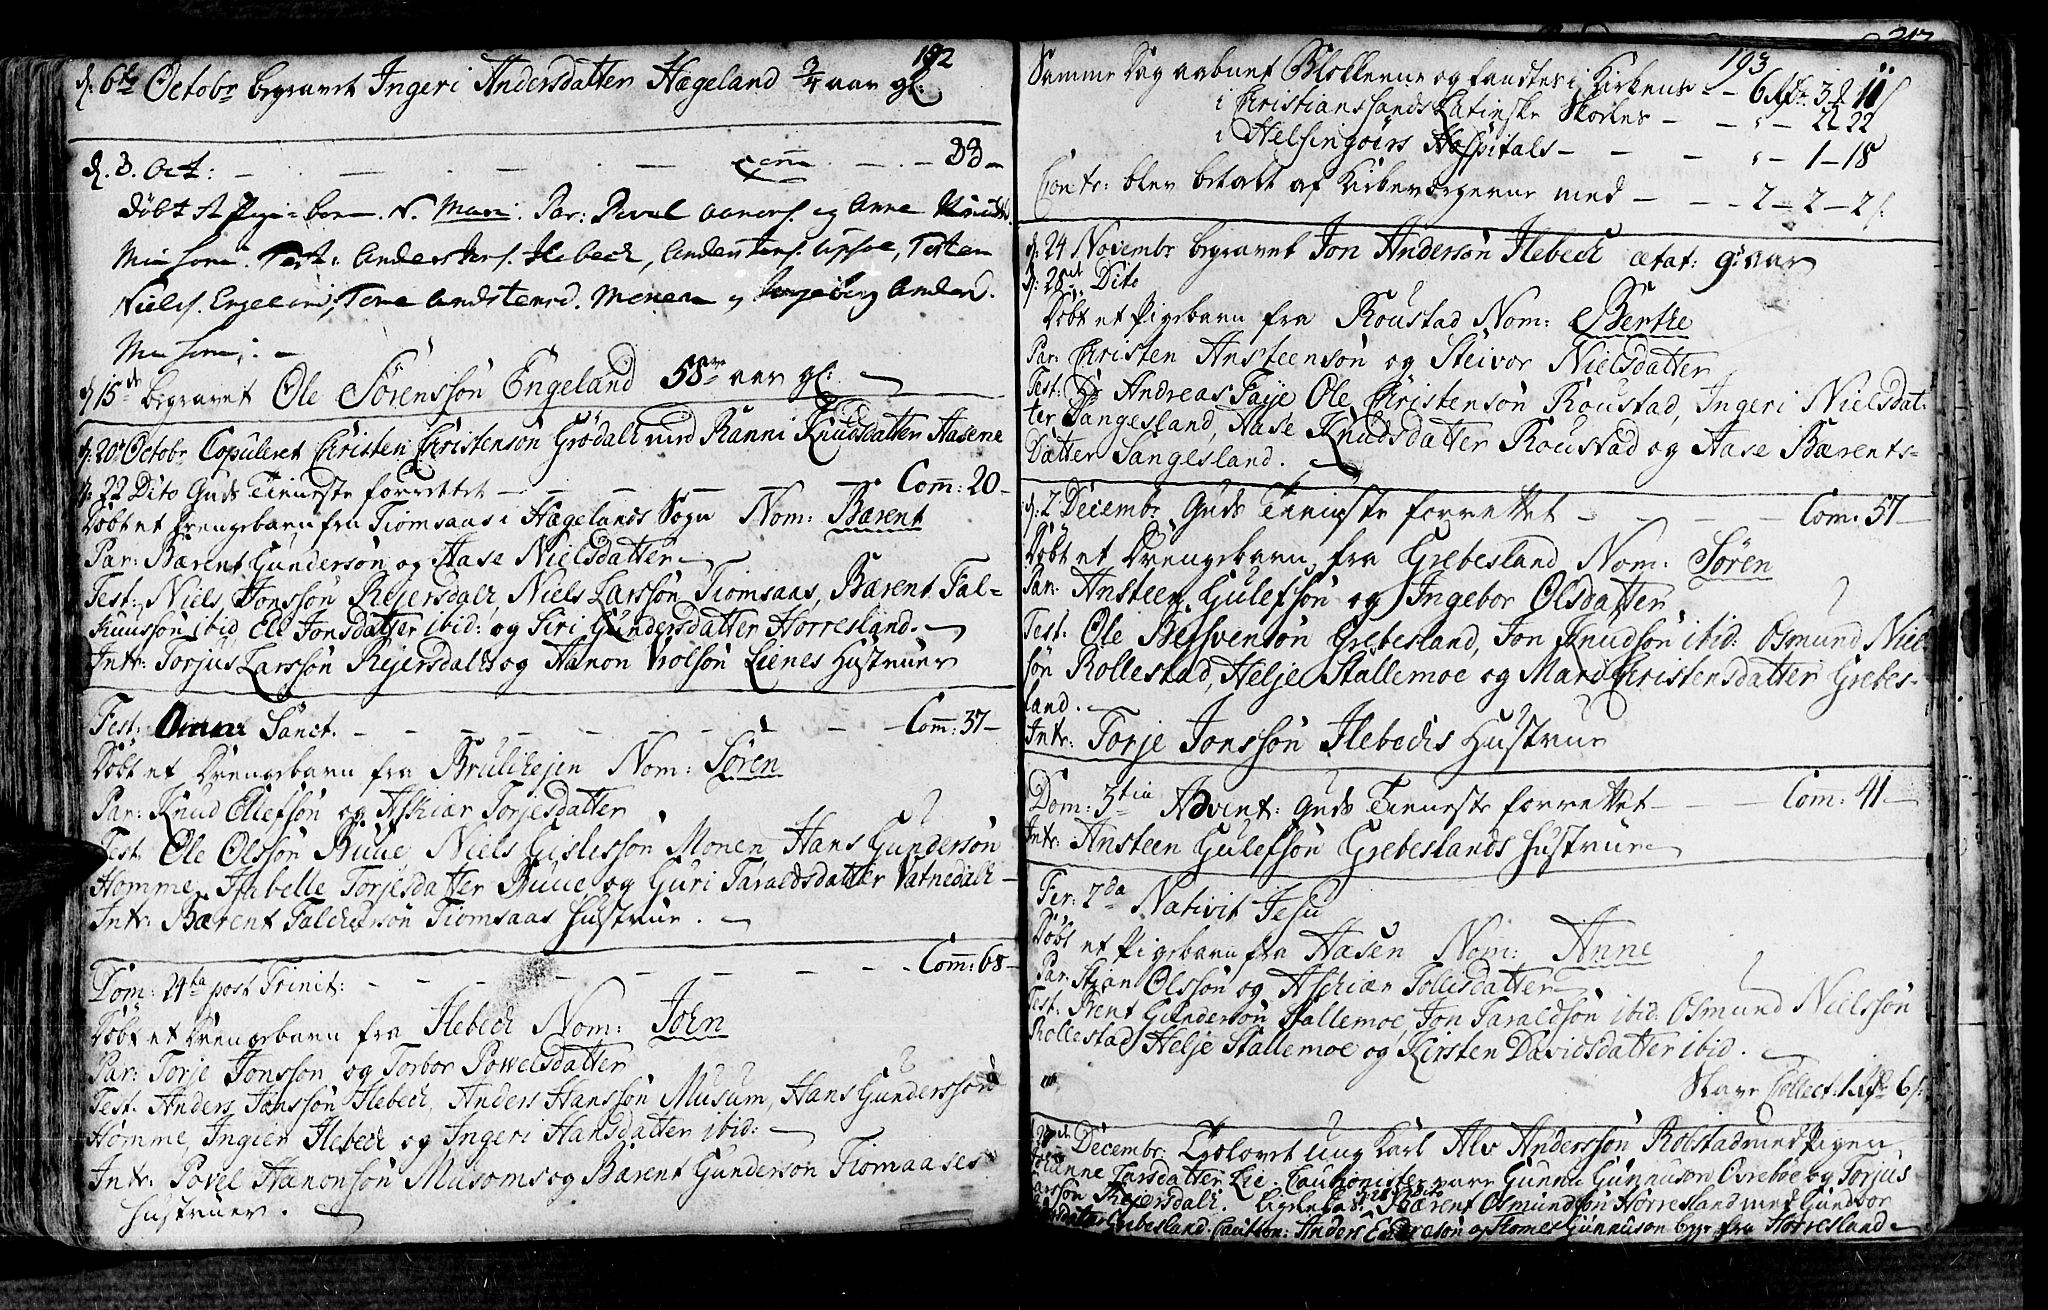 192
d: 6te Octobr begravet Ingeri Andersdatter Hægeland 3/4 aar gl:
d. 3. Oct: — — — — Com — — 33 —
døbt et Pige-barn. N. Mari. Par: Povel Aanons. og Anne
Musom. Test: Anders Hebeck, Anders
Niels. Engeland, Tone Monen og Ingeborg Anders.
Musom. —
d 15de begravet Ole Sörenssön Engeland 58 aar gl:
d: 20 Octobr Copuleret Christen Christensön Grödall med Ranni Knudsdatter Aasene
d: 22 Dito Guds Tieneste forrettet — — — — — Com: 20 —
Döbt et Drengebarn fra Tiomsaas i Hægelands Sogn Nom: Bærent
Par: Bærent Gundersön og Aase Nielsdatter
Test: Niels Jonssön Reiersdall, Niels Larssön Tiomsaas, Bærent Fal=
kuussön ibid, Eli Jonsdatter ibid: og Siri Gundersdatter Horresland.
Intr: Torjus Larssön Reiersdals og Aanon Lienes Hustruer
Fest: Omn: Sanct. — — — — — — — Com: 37 —
Döbt et Drengebarn fra Nom: Sören
Par: Knud Eliefsön og Askiær Torjesdatter
Test. Ole Olssön Buue Niels Gislessön Monen Hans Gundersön
Homme, Isabelle Torjesdatter Buue og Guri Taraldsdatter Vatnedall —
Intr: Bærent Falckersön Tiomsaas Hustrue.
Dom: 24ta post Trinit: — — — — — — — Com: 68 —
Döbt et Drengebarn fra Ilebeck Nom: John
Par: Torje Jonssön og Torbor Powelsdatter
Test. Anders Jonssön Ilebeck, Anders Hanssön Musum, Hans Gunderssön
Homme, Ingier Ilebeck og Ingeri Hansdatter ibid:
Intr: Povel Hanonsön Musoms og Bærent Gundersön Tiomaases
Hustruer.
193
217
Samme Dag aabnet Blokkerne og fandtes i Kirkens — 6 Rd 3 11 s
i Christianssands Latinske Skoeles — — 2 22
i Helsingöers Hospitals — — — 1 — 18
Contr: blev betalt af Kirkeværgerne med — — 2 — 2 — 2 s.
d: 24 Novembr begravet Jon Andersön Ilebeck ætat: 9 aar
d: 28 Dito
Döbt et Pigebarn fra Roustad Nom: Berthe
Par: Christen Ansteensön og Steivor Nielsdatter
Test: Andreas Faye Ole Christensön Roustad, Ingeri Nielsdat=
ter Sangesland, Aase Knudsdatter Roustad og Aase Bærents=
Datter Sangesland.
d: 2 Decembr Guds Tieneste forrettet — — — — Com: 57 —
Döbt et Drengebarn fra Grebesland Nom: Sören
Par: Ansteen Gulefsön og Ingebor Olsdatter
Test. Ole Grebesland, Jon Knudsön ibid: Osmund Niel
sön Rollestad, Helje Stallemoe og Mari Christensdatter Grebes=
land.
Intr: Torje Jonssön Ilebecks Hustrue
Dom: 3tia Advent: Guds Tieneste forrettet — — Com: 41 —
Intr: Ansteen Gulefsön Grebeslands Hustrue
Fer: 2da Nativit Jesu
Döbt et Pigebarn fra Aasen Nom: Anne
Par: Olssön og Askiær Tollisdatter
Test. Brent Gundersön Stallemoe, Jon Taraldsön ibid: Osmund Nielssön
Rollestad, Helje Stallemoe og Kirsten Davidsdatter ibid.
Collect: 1 6 s.
Decembr: Trolovet ung Karl Alv Anderssön Rolstad med Pigen
Larsdatter Lie. Cautionister vare Gunnu Gunnuson Övreböe og Torjus
Larssön Reiersdall. Ligeledes Bærent Osmundsön Horresland med Gundbor
Grebesland. Caution: Anders og Tomes Gunnuson begge fra Horresland